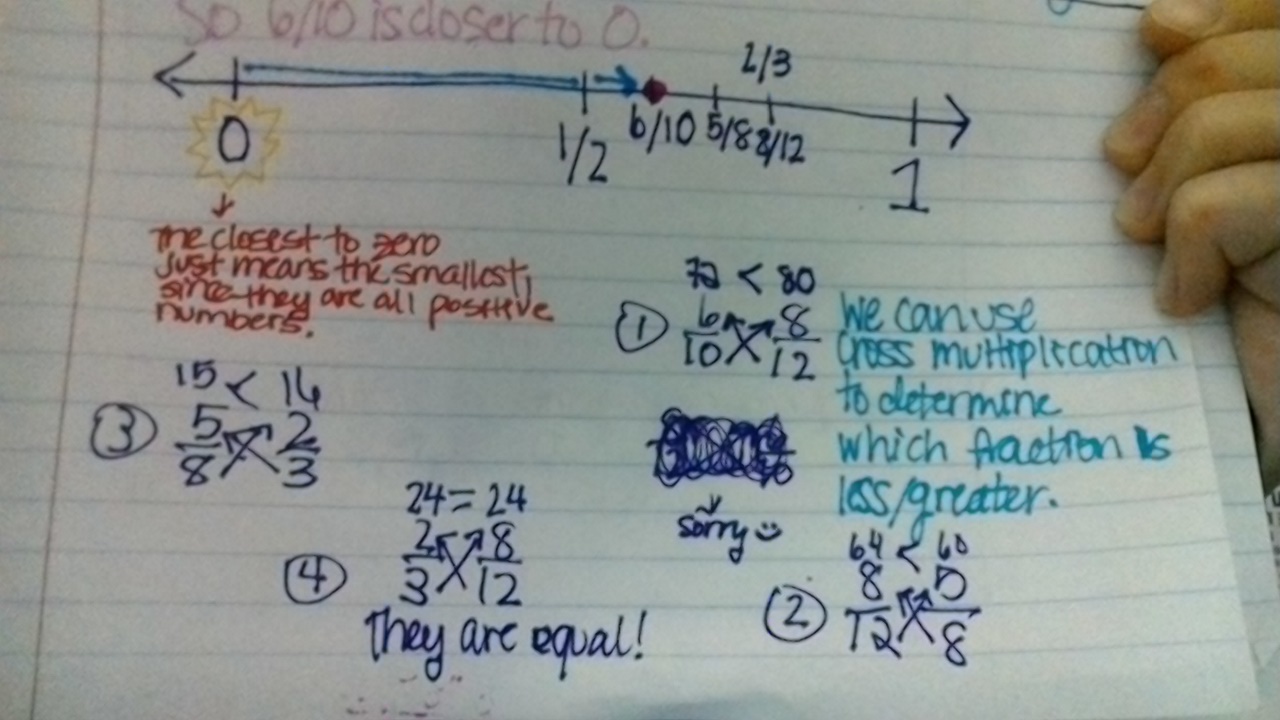 So 6/10 is closer to 0.
2/3
0 1/2 6/10 5/8 8/12 1
The closest to zero
just means the smallest,
since they are all positive
numbers.
72 < 80
① 6/10 8/12
We can use
cross multiplication
to determine
which fraction is
less/greater.
15 < 16
③ 5/8 2/3
sorry
24 = 24
④ 2/3 8/12
They are equal!
64 < 60
② 8/12 5/8